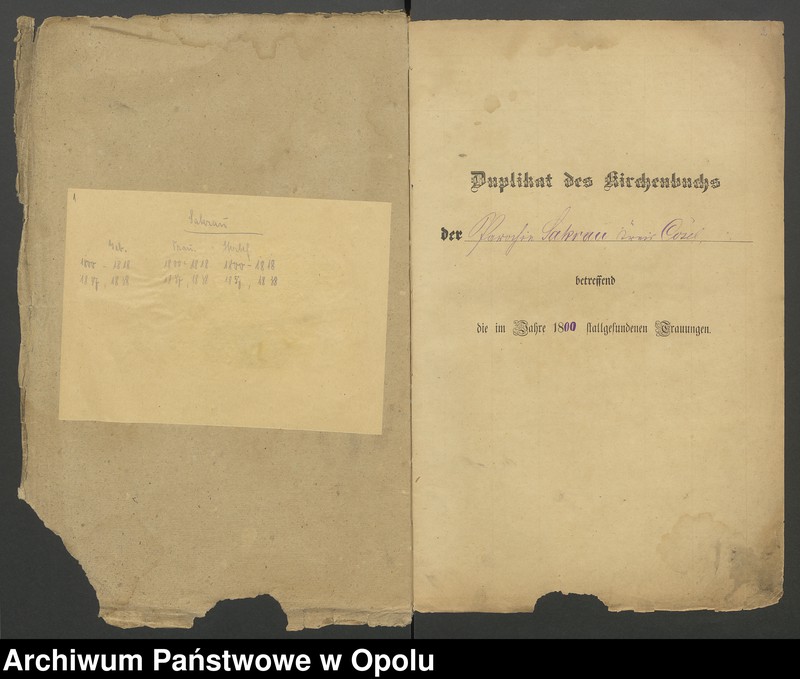 Sakrau
Geb. Trau. Sterbf.
1800 - 1818 1800 - 1818 1800 - 1818
Duplikat des Kirchenbuchs
der Parochie Sakrau Kreis Cosel
betreffend
die im Jahre 1800 stattgefundenen Trauungen.
Archiwum Państwowe w Opolu